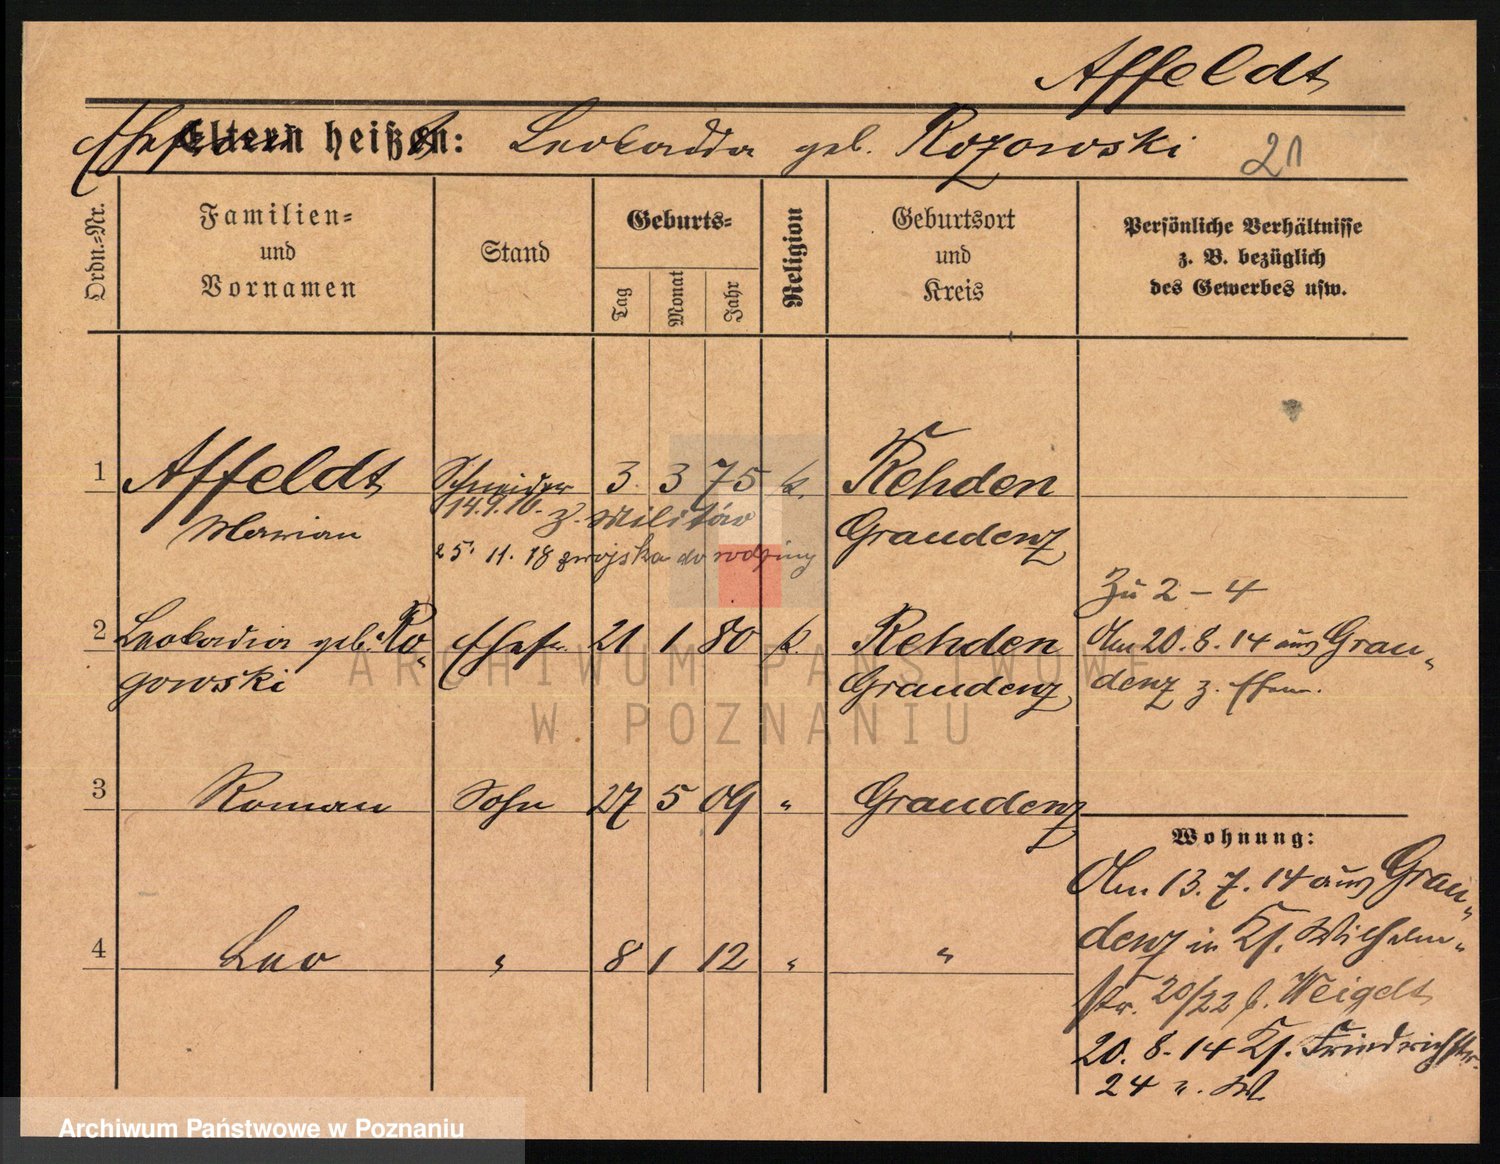 Affeldt
Eltern heißen: Leokadia geb. Rozowski 21
Ordn.=Nr.
Familien=
und
Vornamen
Stand
Geburts=
Tag
Monat
Jahr
Religion
Geburtsort
und
Kreis
Persönliche Verhältnisse
z. B. bezüglich
des Gewerbes usw.
1 Affeldt Schneider 3. 3 75 k. Rehden
Marian 14.9.16. z. Militär Graudenz
25. 11. 18 z wojska do rodziny
Zu 2 – 4
2 Leokadia geb. Ro= Ehefr. 21 1 80 k. Rehden Am 20. 8. 14 aus Grau=
gowski Graudenz denz z. Ehem.
3 Roman Sohn 27 5 09 " Graudenz
Wohnung:
Am 13. 7. 14 aus Grau=
4 Leo " 8 1 12 " "
denz in Wilhelm=
str. 20/22 b. Weigelt
20. 8. 14 Friedrichstr.
24 W.
ARCHIWUM PAŃSTWOWE
W POZNANIU
Archiwum Państwowe w Poznaniu